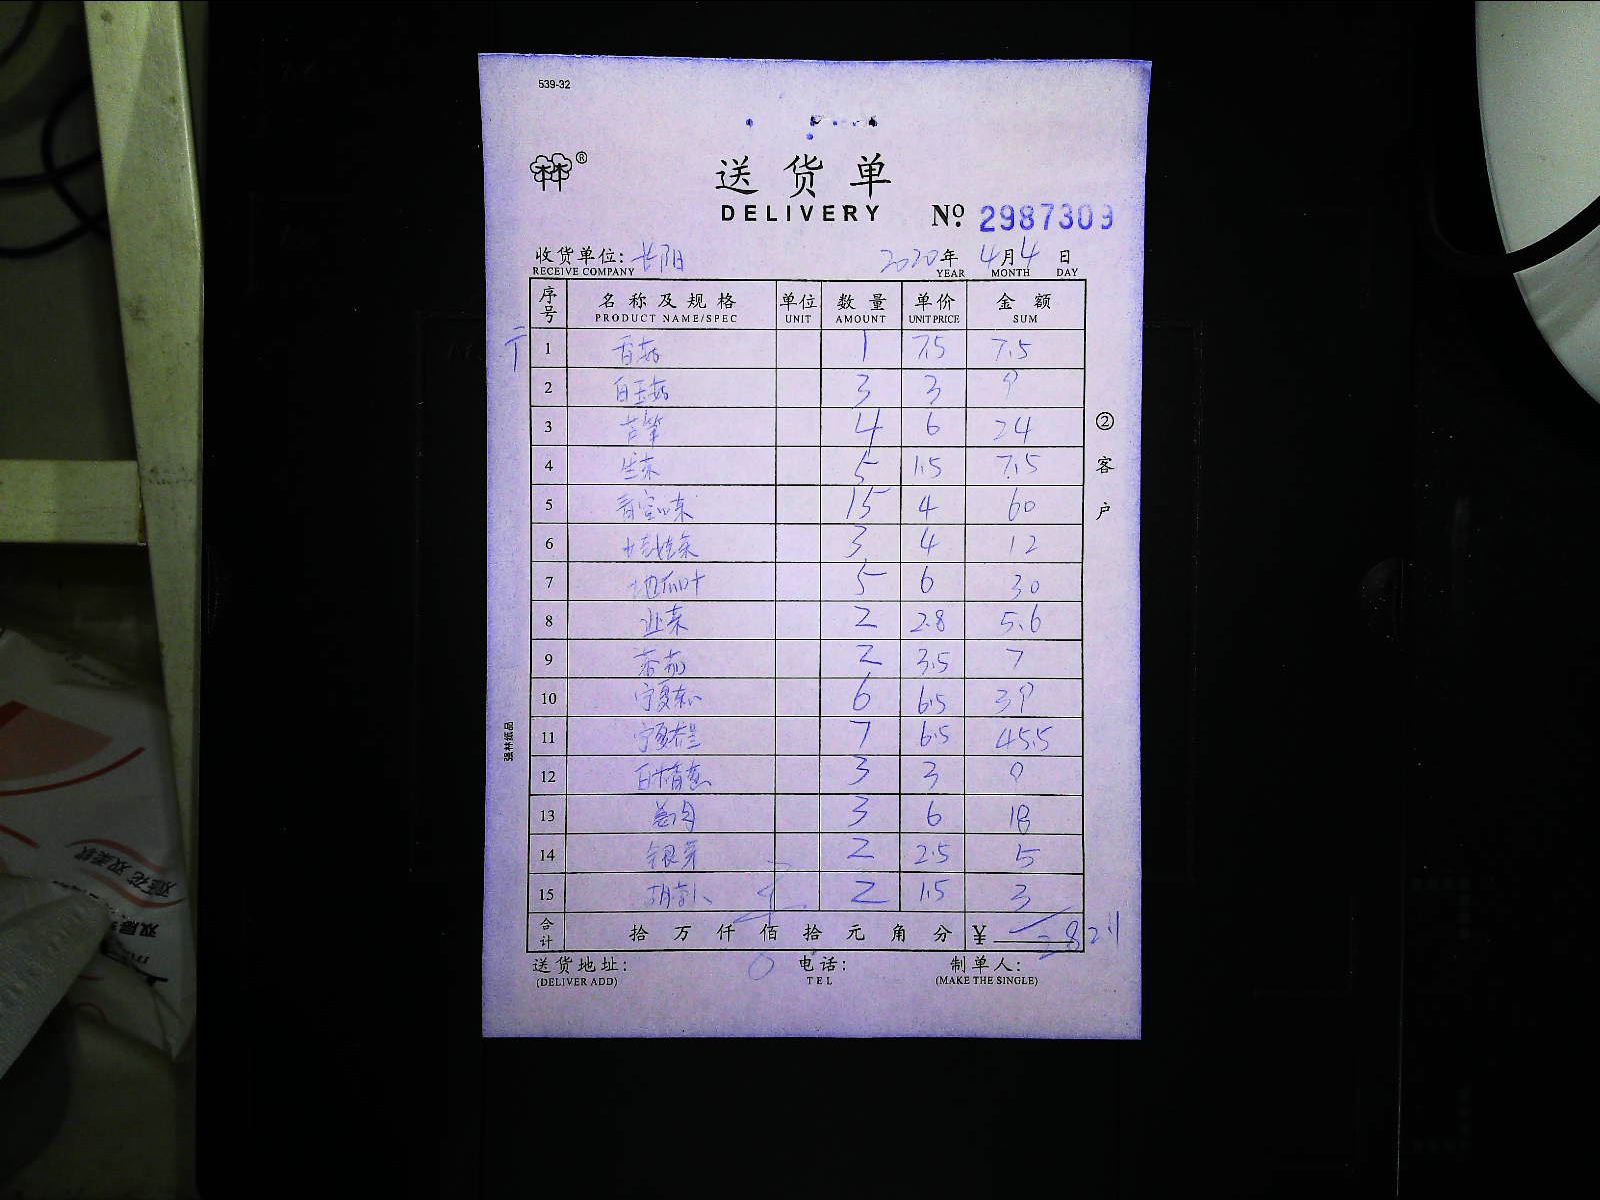 539-32
送货单
DELIVERY
№ 2987309
收货单位: 长阳 2020年 4月4日
RECEIVE COMPANY YEAR MONTH DAY
序号 名称及规格 单位 数量 单价 金额
PRODUCT NAME/SPEC UNIT AMOUNT UNIT PRICE SUM
1 香菇 1 7.5 7.5
2 白玉菇 3 3 9
3 芦笋 4 6 24
4 生菜 5 1.5 7.5
5 15 4 60
6 3 4 12
7 地瓜叶 5 6 30
8 韭菜 2 2.8 5.6
9 番茄 2 3.5 7
10 宁夏菜心 6 6.5 39
11 宁夏 7 6.5 45.5
12 3 3 9
13 3 6 18
14 银芽 2 2.5 5
15 胡萝卜 2 1.5 3
合计 拾万仟佰拾元角分 ¥ 282.1
送货地址: 电话: 制单人:
(DELIVER ADD) TEL (MAKE THE SINGLE)
②客户
强林纸品